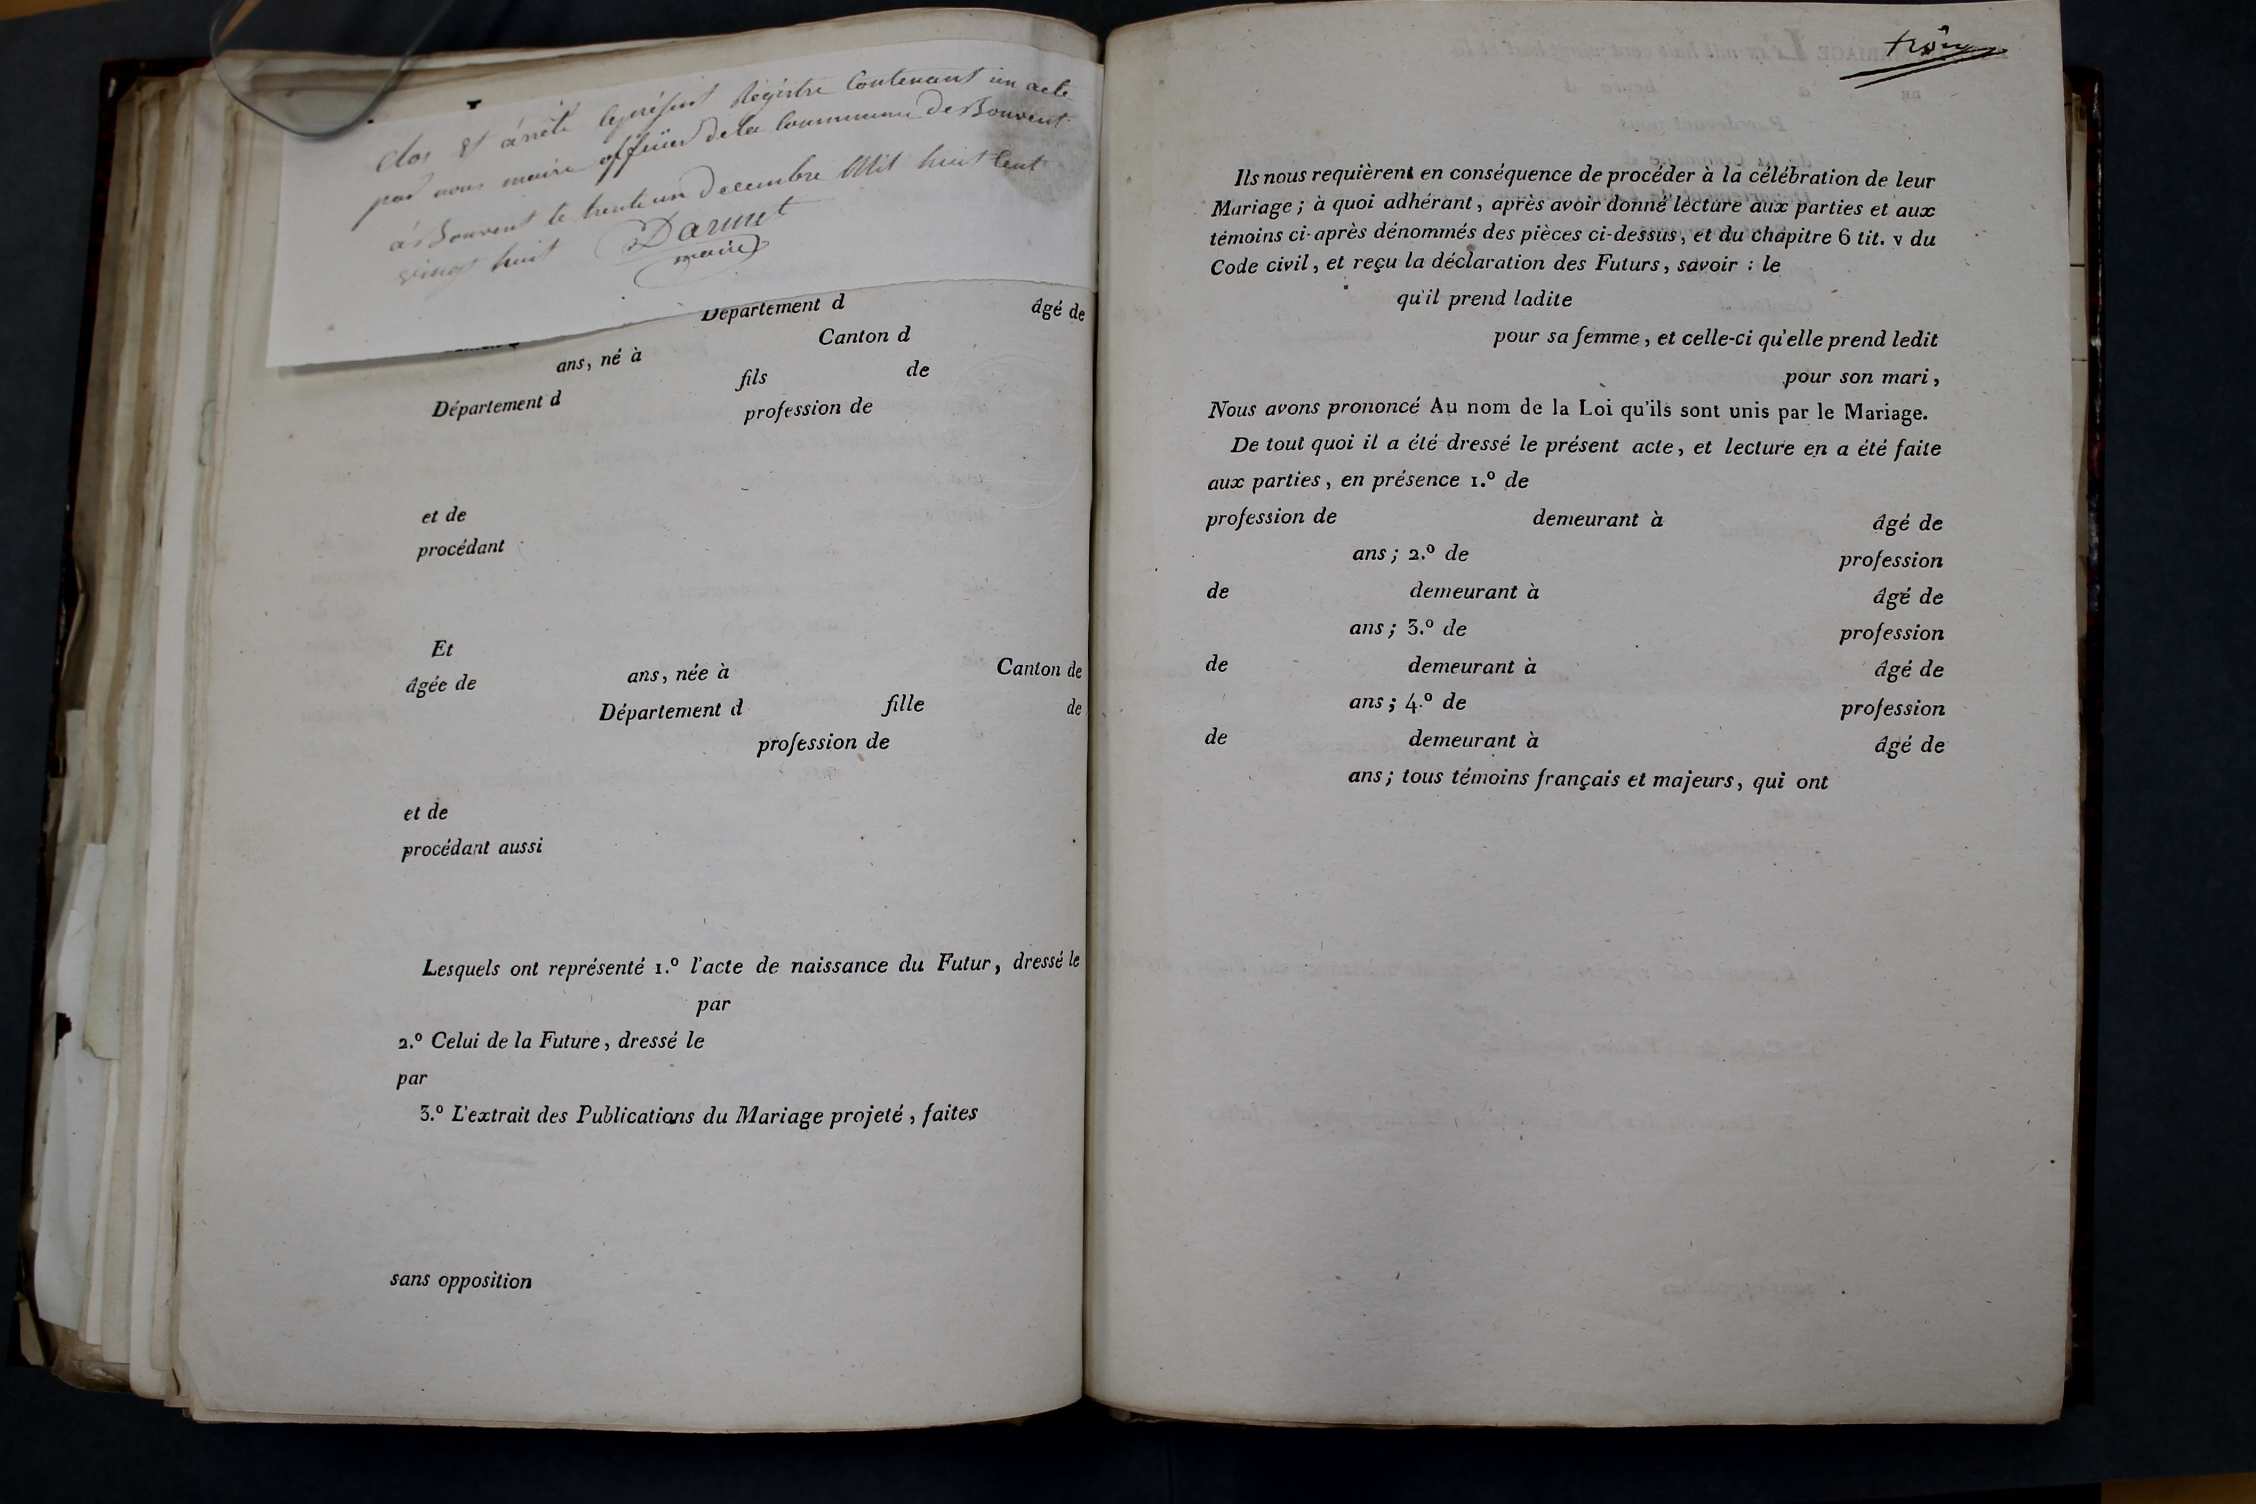 Clos et arrêté le présent Registre Contenant un acte
par nous maire officier de la Commune de Bouvent
à Bouvent le trente un Decembre Mil huit Cent
vingt huit Darmet
maire
Département d âgé de
ans, né à Canton d
Département d fils de
profession de
et de
procédant
Et
âgée de ans, née à Canton de
Département d fille de
profession de
et de
procédant aussi
Lesquels ont représenté 1.º l'acte de naissance du Futur, dressé le
par
2.º Celui de la Future, dressé le
par
3.º L'extrait des Publications du Mariage projeté, faites
sans opposition
Ils nous requièrent en conséquence de procéder à la célébration de leur
Mariage; à quoi adhérant, après avoir donné lecture aux parties et aux
témoins ci-après dénommés des pièces ci-dessus, et du chapitre 6 tit. v du
Code civil, et reçu la déclaration des Futurs, savoir : le
qu'il prend ladite
pour sa femme, et celle-ci qu'elle prend ledit
pour son mari,
Nous avons prononcé Au nom de la Loi qu'ils sont unis par le Mariage.
De tout quoi il a été dressé le présent acte, et lecture en a été faite
aux parties, en présence 1.º de
profession de demeurant à âgé de
ans; 2.º de profession
de demeurant à âgé de
ans; 3.º de profession
de demeurant à âgé de
ans; 4.º de profession
de demeurant à âgé de
ans; tous témoins français et majeurs, qui ont